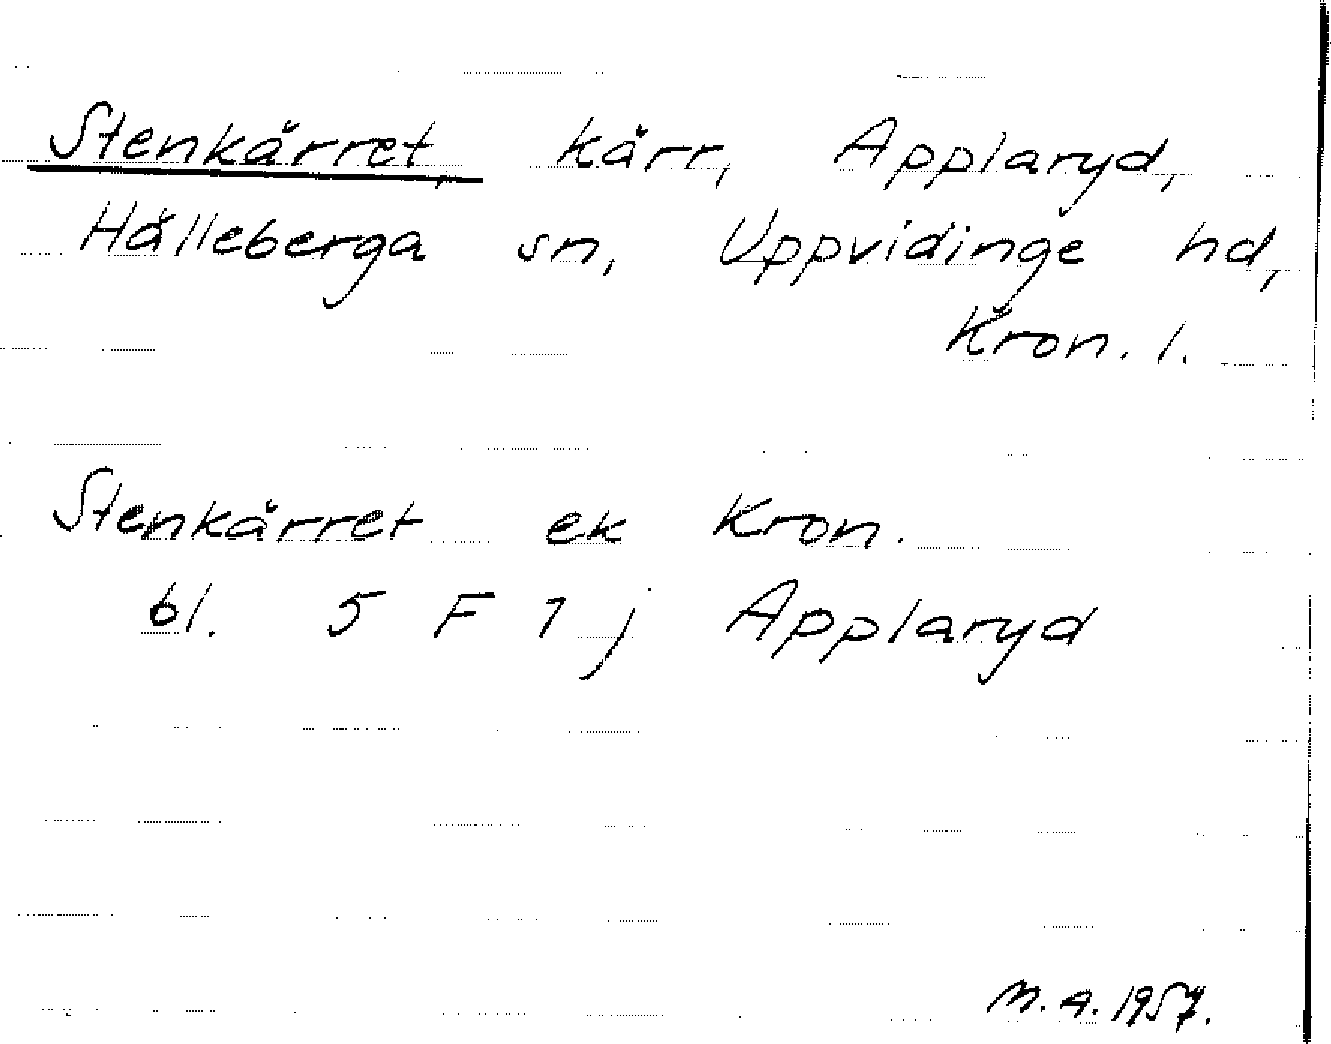 Stenkärret, kärr, Applaryd,
Hälleberga sn, Uppvidinge hd,
Kron. l.
Stenkärret ek Kron.
bl. 5 F 7 j Applaryd
M. A. 1957.